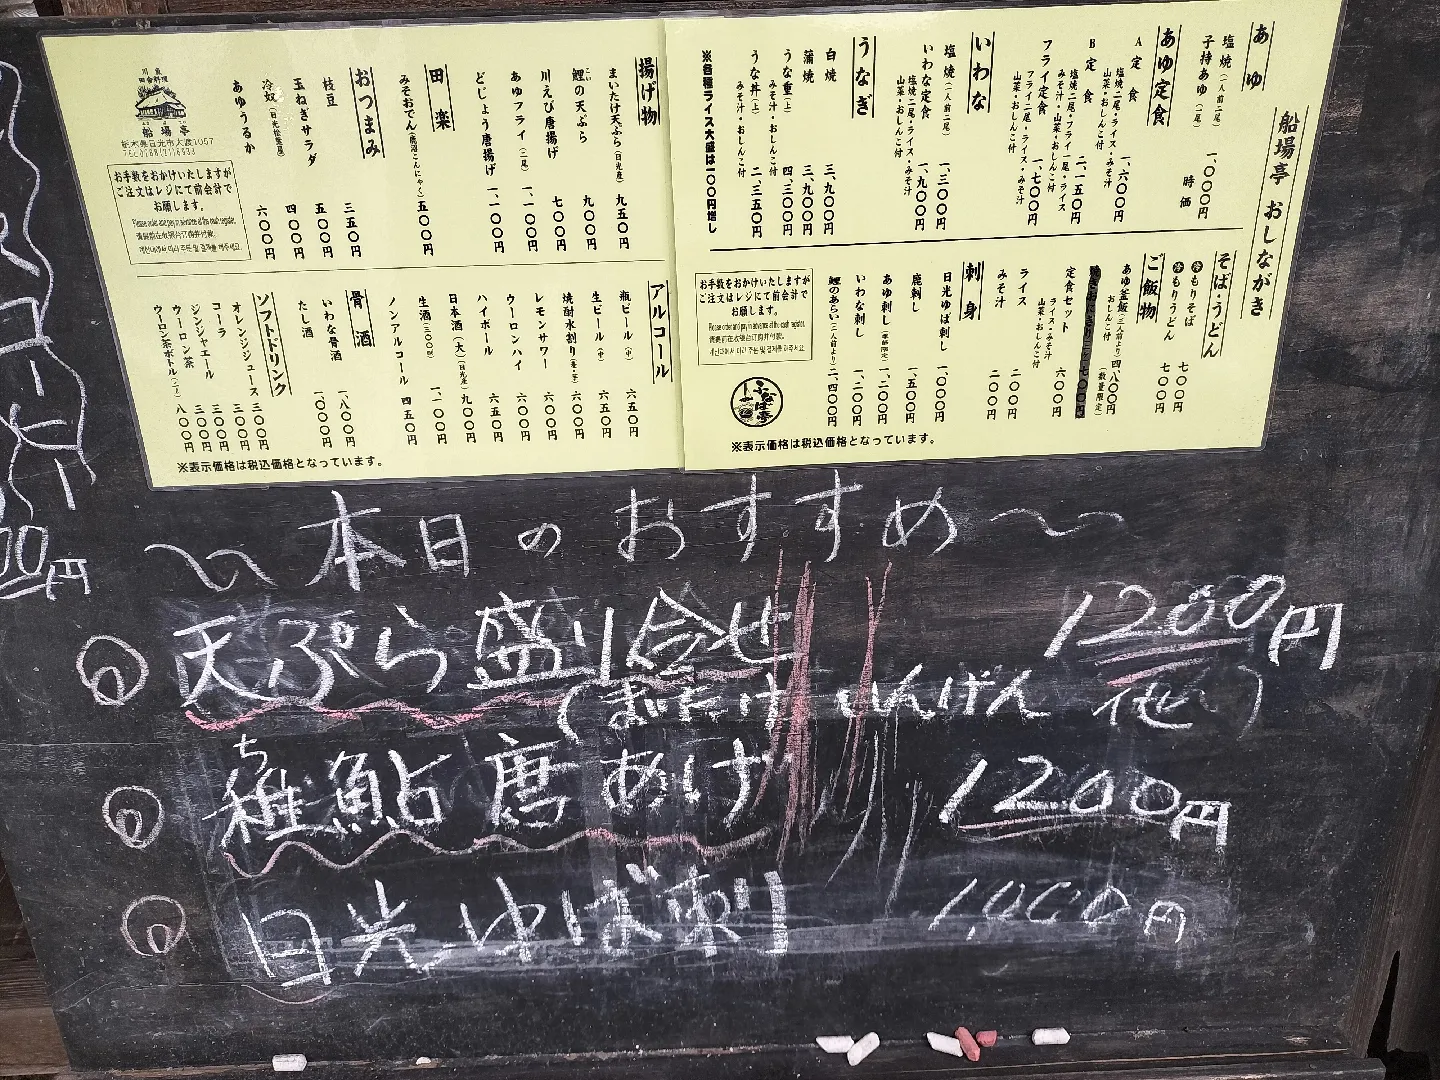 船場亭 おしながき
あゆ
塩焼(一人前二尾) 一、〇〇〇円
子持あゆ(一尾) 時価
あゆ定食
A定食 一、六〇〇円
塩焼二尾・ライス・みそ汁
山菜・おしんこ付
B定食 二、一五〇円
塩焼二尾・フライ一尾・ライス
みそ汁・山菜・おしんこ付
フライ定食 一、七〇〇円
フライ二尾・ライス・みそ汁
山菜・おしんこ付
いわな
塩焼(一人前二尾) 一、三〇〇円
いわな定食 一、九〇〇円
塩焼二尾・ライス・みそ汁
山菜・おしんこ付
うなぎ
白焼 三、九〇〇円
蒲焼 三、九〇〇円
うな重(上) 四、三〇〇円
みそ汁・おしんこ付
うな丼(上) 二、三五〇円
みそ汁・おしんこ付
※各種ライス大盛は一〇〇円増し
そば・うどん
冷もりそば 七〇〇円
冷もりうどん 七〇〇円
ご飯物
あゆ釜飯(二人前より) 四、八〇〇円
おしんこ付 (数量限定)
定食セット 六〇〇円
ライス・みそ汁
山菜・おしんこ付
ライス 二〇〇円
みそ汁 二〇〇円
刺身
日光ゆば刺し 一、〇〇〇円
鹿刺し 一、五〇〇円
あゆ刺し 一、二〇〇円
いわな刺し 一、二〇〇円
鯉のあらい(二人前より) 二、四〇〇円
お手数をおかけいたしますが
ご注文はレジにて前会計で
お願します。
Please order and pay in advance at the cash register.
ふなば亭
※表示価格は税込価格となっています。
揚げ物
まいたけ天ぷら(日光産) 九五〇円
鯉の天ぷら 九〇〇円
川えび唐揚げ 七〇〇円
あゆフライ(二尾) 一、一〇〇円
どじょう唐揚げ 一、一〇〇円
田楽
みそおでん(鹿沼こんにゃく) 五〇〇円
おつまみ
枝豆 三五〇円
玉ねぎサラダ 五〇〇円
冷奴 四〇〇円
あゆうるか 六〇〇円
川魚
田舎料理
船場亭
栃木県日光市大渡1057
お手数をおかけいたしますが
ご注文はレジにて前会計で
お願します。
Please order and pay in advance at the cash register.
アルコール
瓶ビール(中) 六五〇円
生ビール(中) 六五〇円
焼酎水割り(麦・芋) 六〇〇円
レモンサワー 六〇〇円
ウーロンハイ 六〇〇円
ハイボール 六五〇円
日本酒(大)(日光産) 九〇〇円
生酒(三〇〇㎖) 一、一〇〇円
ノンアルコール 四五〇円
骨酒
いわな骨酒 一、八〇〇円
たし酒 一、〇〇〇円
ソフトドリンク
オレンジジュース 三〇〇円
コーラ 三〇〇円
ジンジャエール 三〇〇円
ウーロン茶 三〇〇円
ウーロン茶ボトル 八〇〇円
※表示価格は税込価格となっています。
00円
〜本日のおすすめ〜
天ぷら盛り合せ 1200円
(まいたけ いんげん 他)
稚鮎唐あげ 1200円
ち
日光ゆば刺 1,000円